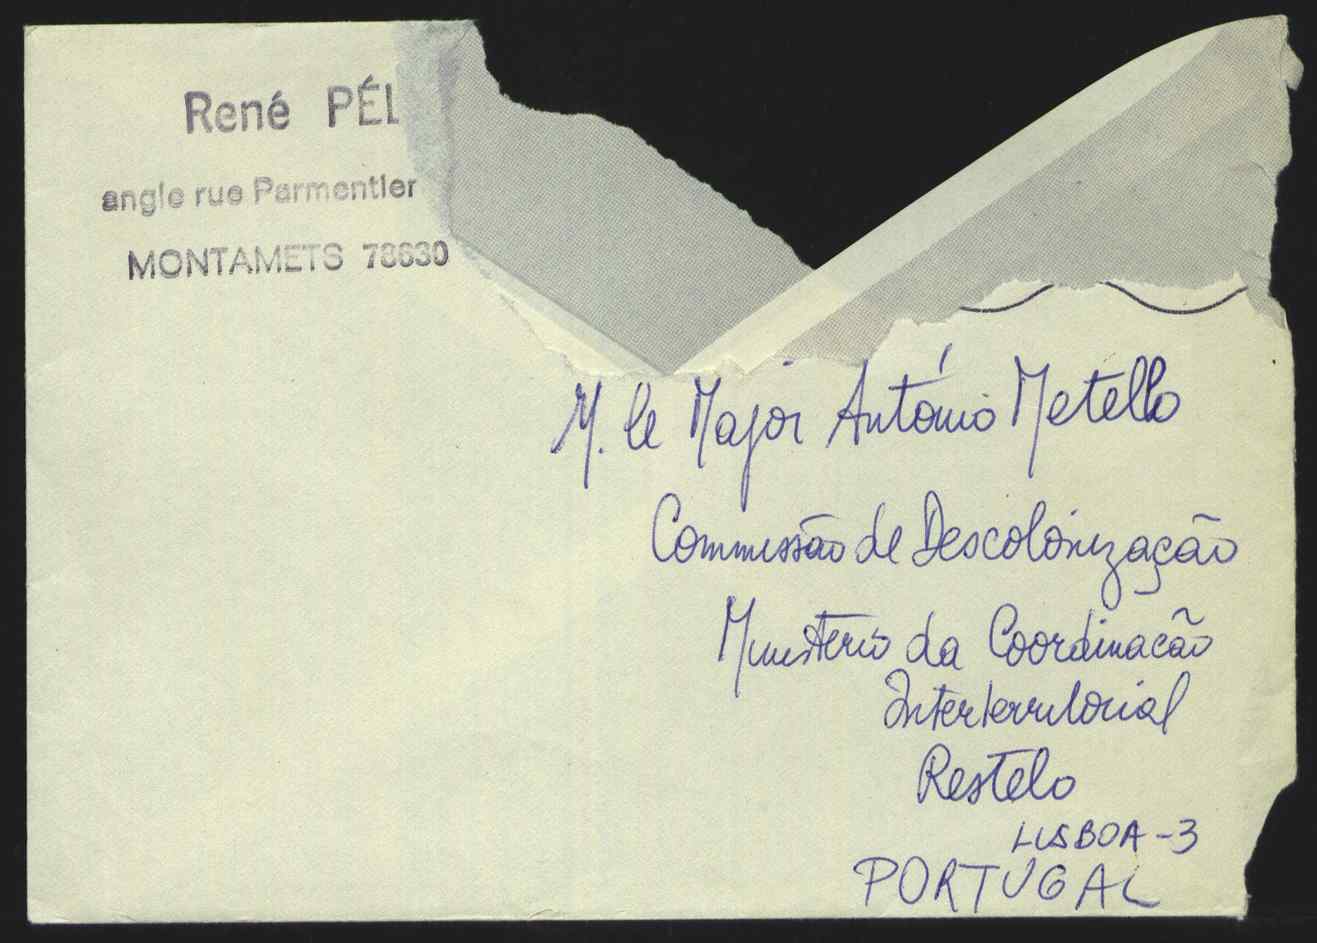 René PÉL
angle rue Parmentier
MONTAMETS 78630
M. le Major António Metello
Commissão de Descolonização
Ministério da Coordinacão
Interterritorial
Restelo
LISBOA-3
PORTUGAL